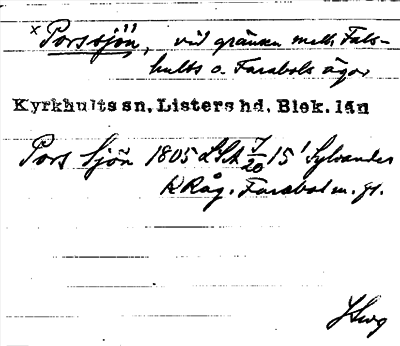 x Porssjön, vid gränsen mell. Fals-
hults o. Farabols ägor
Kyrkhults sn, Listers hd, Blek. län
Pors Sjön 1805 LSA J/20 15¹ Sylvander
R Råg. Farabol m. fl.